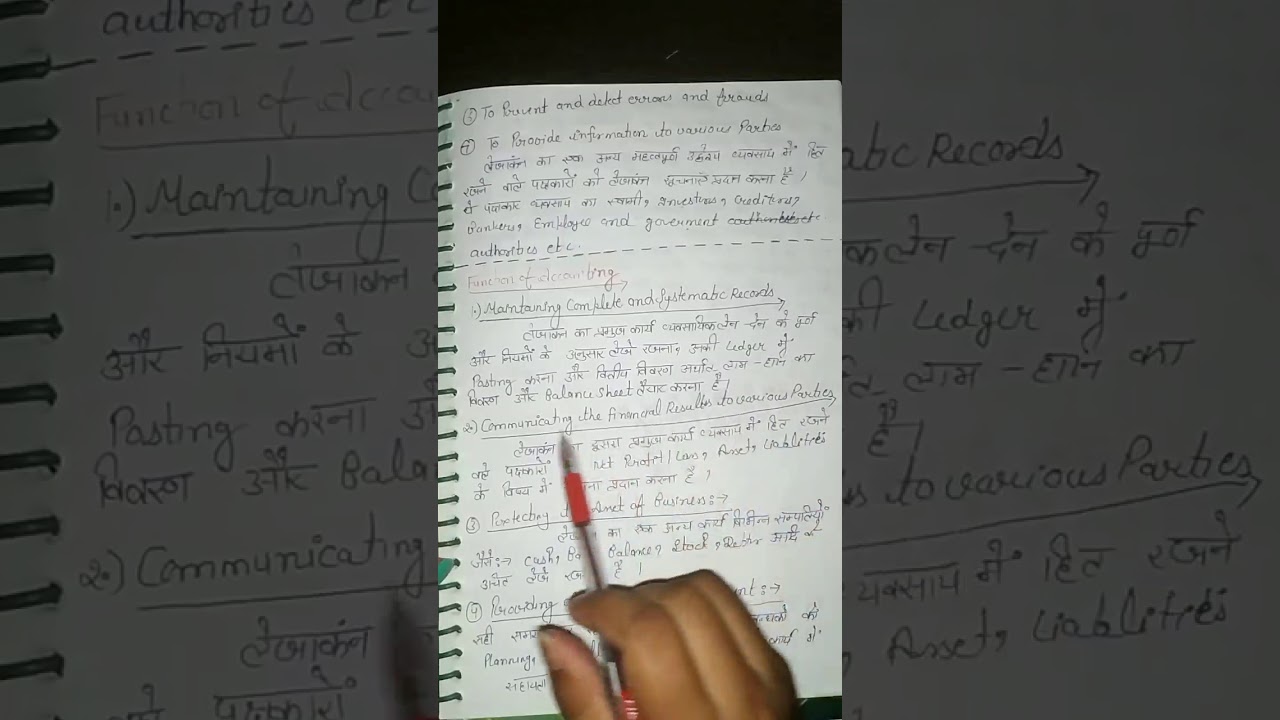 ⑥ To Prevent and detect errors and frauds
⑦ To Provide information to various Parties
लेखाकंन का एक अन्य महत्वपूर्ण उद्देश्य व्यवसाय में हित
रखने वाले पक्षकारों को लेखाकंन सूचनाएं प्रदान करना है ।
ये पक्षकार व्यवसाय का स्वामी, Investors, Creditors,
Bankers, Employee and goverment
authorities etc.
Function of Accounting
1.) Maintaining Complete and Systematic Records
लेखाकंन का प्रमुख कार्य व्यवसायिक लेन-देन के पूर्ण
और नियमों के अनुसार लेखे रखना, उनकी Ledger में
Pasting करना और वित्तीय विवरण अर्थात लाभ-हानि का
विवरण और Balance Sheet तैयार करना है ।
2.) Communicating the Financial Results to various Parties
लेखाकंन दूसरा प्रमुख कार्य व्यवसाय में हित रखने
वाले पक्षकारों Net Profit / Loss, Asset, Liablitres
के विषय में प्रदान करना है ।
③ Protecting of Business:→
का एक अन्य कार्य विभिन्न सम्पतियों
जैसे:→ Cash, Balance, Stock, Debtor आदि
उचित लेखे है ।
④ Providing :→
सही को
Planning, कार्य में
सहायता